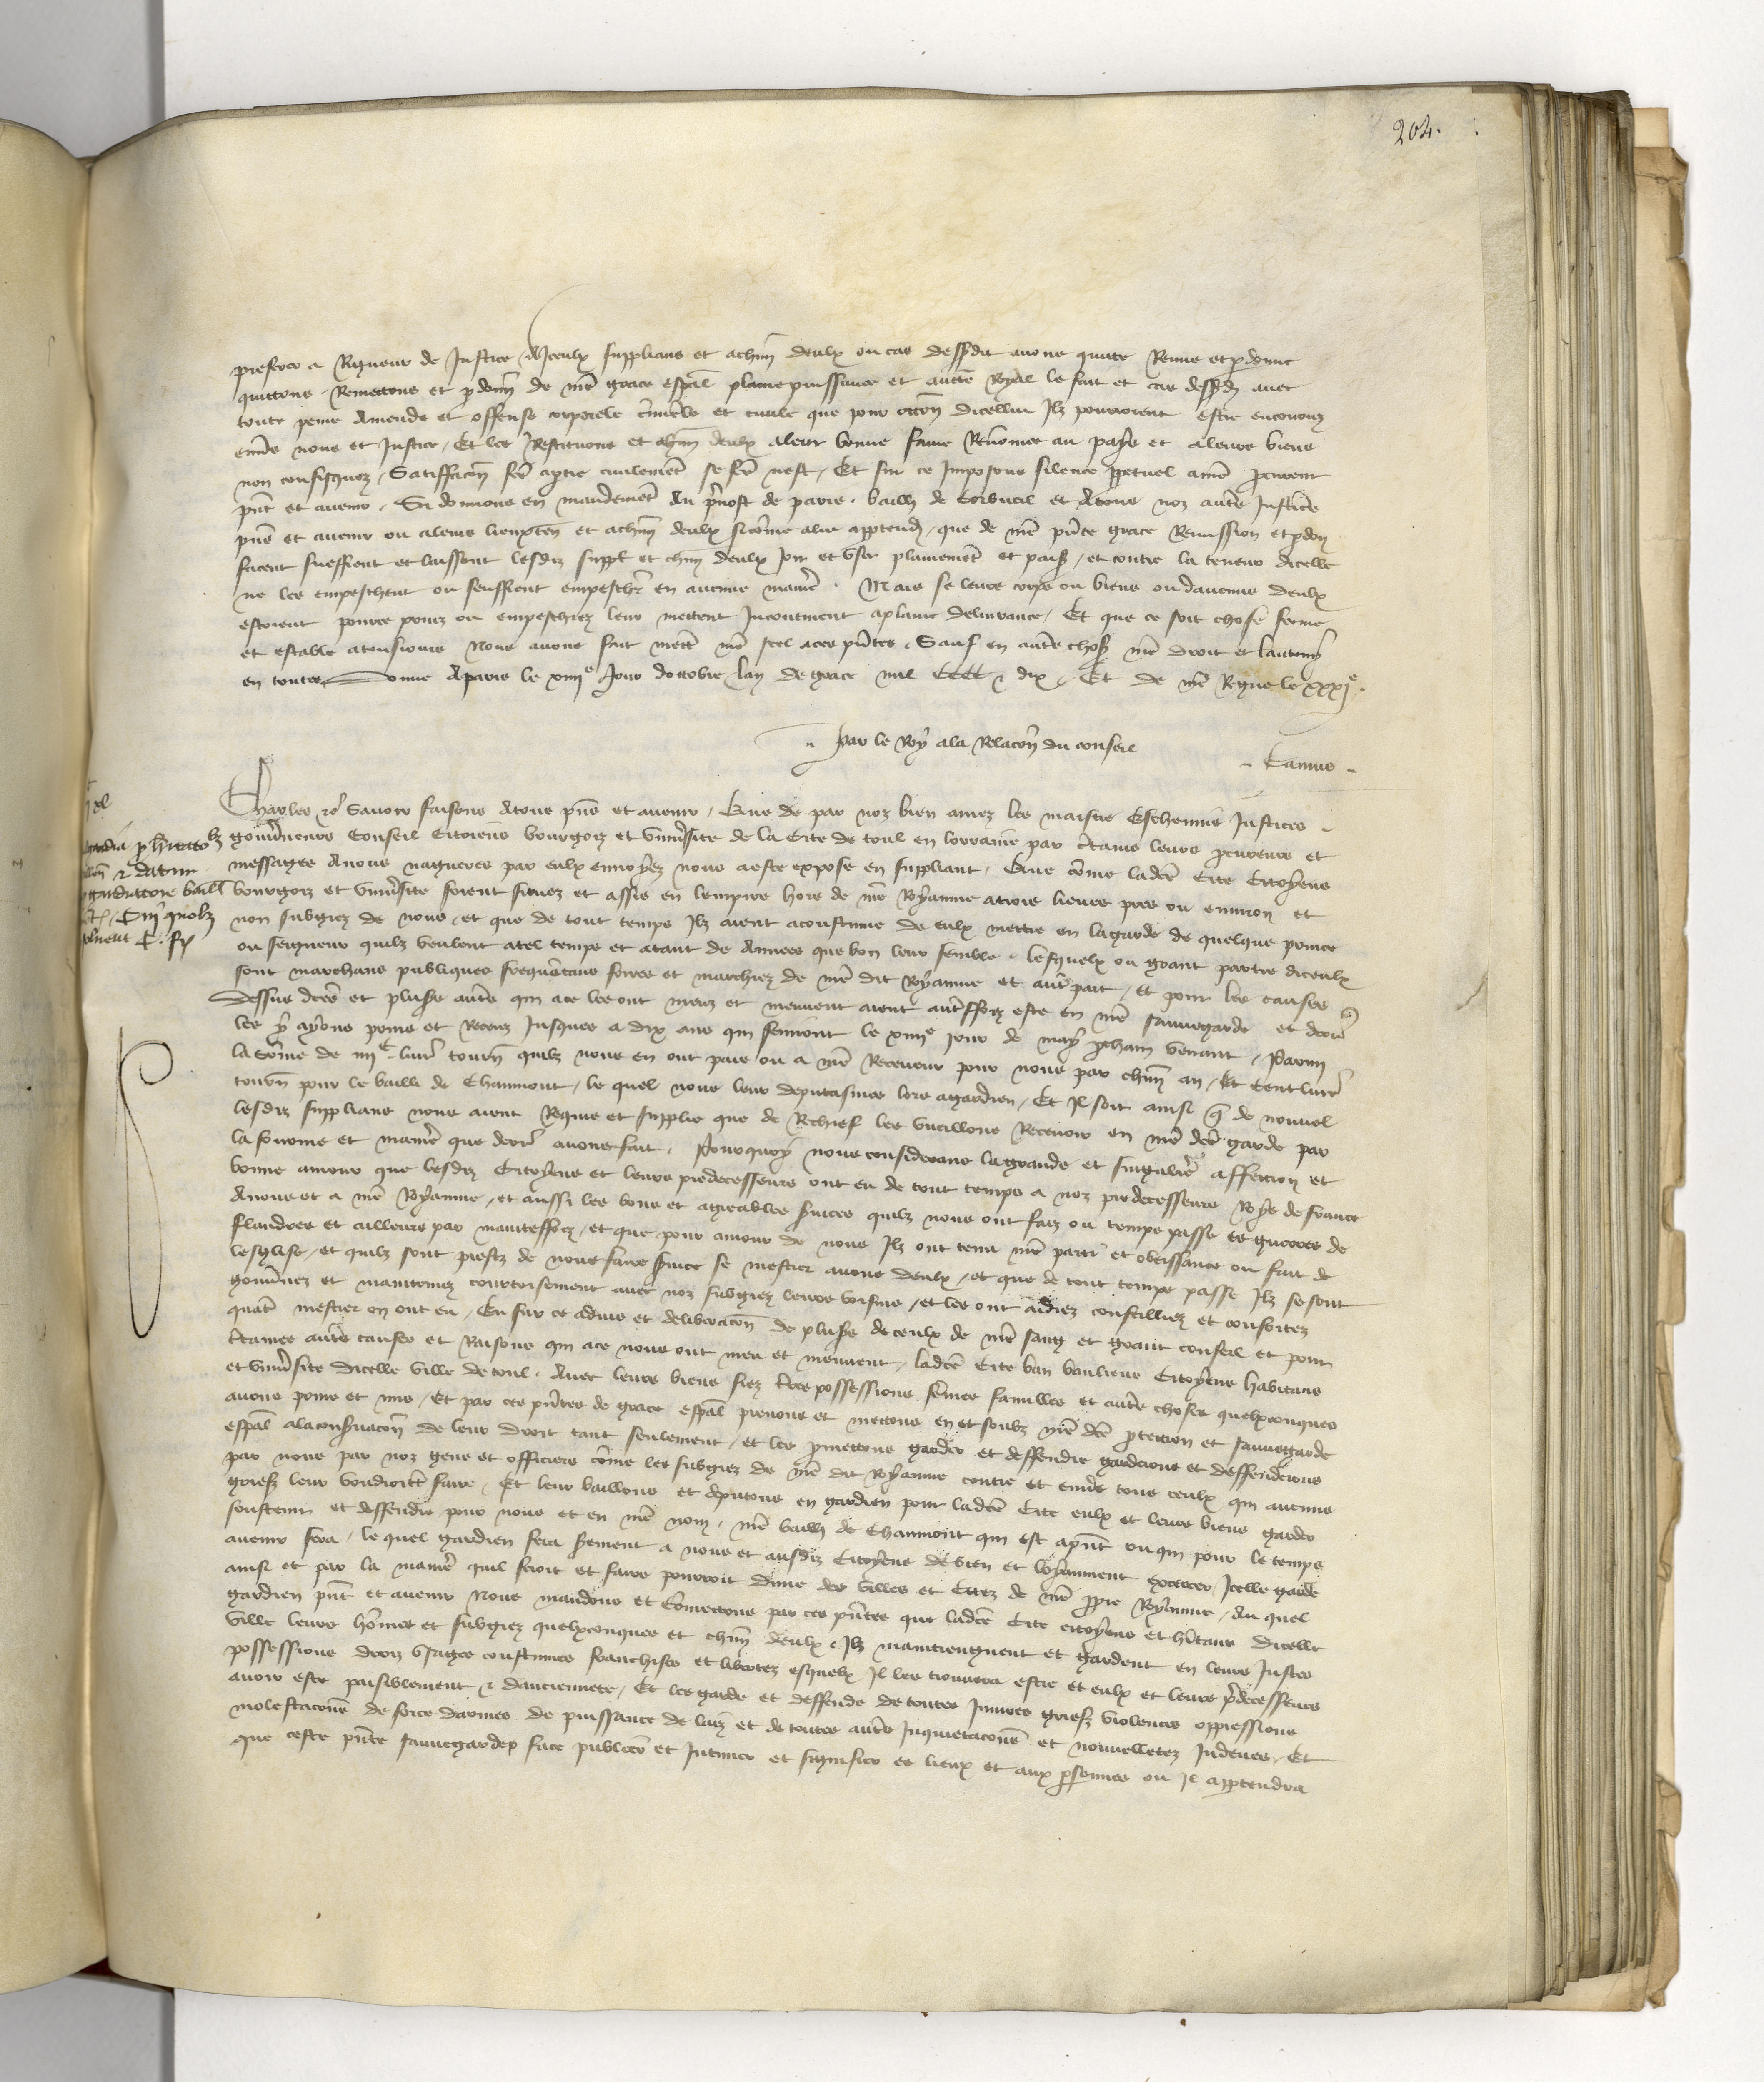 204.
preferer a Rigueur de Justice / A Iceulx supplians et a chūn deulx ou cas dessusdit auons quitte Remis et pdonne
quittons . Remettons et pdonn̄s de nr̄e grace esp̄al plaine puissance et auctē Royal le fait et cas dessusdiz auec
toute peine Amende et offense corporele crīinele et ciuile que pour occōn dicellui Ilz pourroient estre encouruz
enuers nous et Justice / Et les Restituons et chūn deulx a leur bonne fame Renōmee au pays et a leurs biens
non confisquez / Satisffacōn fc̄e a ptie ciuilemēt se fc̄e nest / Et sur ce Imposons silence ppetuel a nr̄e pcureur
pn̄t et auenir . Si donnons en mandemēt Au p̄uost de paris . bailli de Corbueil et A touz noz autr̄s Justic̄rs
pn̄s et auenir ou a leurs lieuxten̄ et a chūn deulx si cōme a lui apptendra / que de nr̄e pn̄te grace Remission et pdon
facent sueffrent et laissent lesdiz suppl̄ et chūn deulx Joir et vser plainemēt et paisiblement / et contre la teneur dicelle
ne les empeschent ou seuffrent empeschier en aucune manier̄ . Mais se leurs corps ou biens ou daucuns deulx
estoient pour ce prins ou empeschiez leur mettent Incontinent a plaine deliurance / Et que ce soit chose ferme
et estable a tousiours Nous auons fait mettr̄ nr̄e scel a ces pn̄tes . Sauf en autr̄s choses nr̄e droit et lautruy
en toutes Donne A paris le xiiije Jour doctobre lan de grace mil CCCC et dix / Et de nr̄e Regne le xxxje .
Par le Roy a la Relacōn du conseil
Camus
Charles etc̄ Sauoir faisons A tous pn̄s et auenir / Que de par noz bien amez les maistre Escheuins Justices .
gouuerneurs Conseil Citoiens bourgois et vniuersite de la Cite de toul en lorraine par c̄tains leurs pcureurs et
messages A nous nagueres par eulx enuoyez nous a este expose en suppliant / Que cōme ladc̄e Cite Citoyens
bourgois et vniuersite soient situez et assis en lempire hors de nr̄e Royaume a trois lieues pres ou enuiron et
non subgiez de nous / et que de tout temps Ilz aient acoustume de eulx mettre en la garde de quelque prince
ou seigneur quilz veulent a tel temps et a tant de Annees que bon leur semble . lesquelx ou grant partie diceulx
sont marchans publiques frequentans foires et marchiez de nr̄e dit Royaume et autr̄ part / Et pour les causes
dessus dc̄es et plus̄rs autr̄s qui a ce les ont meuz et meuuent aient autr̄ffoiz este en nr̄e sauuegarde et derr̄
les y ayons prins et Receuz Jusques a dix ans qui fenirōnt le xiiije jour de may pcham venant / Parmi
la sōme de iiijc liur̄ tourn̄ quilz nous en ont paie ou a nr̄e Receueur pour nous par chūn an / Et cent liur̄
tourn̄ pour le bailli de Chaumont / le quel nous leur deputasmes lors a gardien / Et Il soit ainsi que de nouuel
lesdiz supplians nous aient Requis et supplie que de Rechief les vueillons Receuoir en nr̄e dc̄e garde par
la fourme et manier̄ que derr̄ auons fait . Pourquoy nous considerans la grande et singulier̄ affection et
bonne amour que lesdiz Citoyens et leurs predecesseurs ont eu de tout temps a noz predecesseurs Roys de france
A nous et a nr̄e Royaume / et aussi les bons et agreables s̄uices quilz nous ont faiz ou temps passe es guerres de
flandres et ailleurs par maintesfoiz / et que pour amour de nous Ilz ont tenu nr̄e parti et obeissance ou fait de
leglise / et quilz sont prestz de nous faire s̄uice se mestier auons deulx / et que de tout temps passe Ilz se sont
gouuernez et maintenuz courtoisement auec noz subgiez leurs voisins / et les ont aidiez conseilliez et confortez
quāt mestier en ont eu / Eu sur ce aduis et deliberacōn de plus̄rs de ceulx de nr̄e sang et grant conseil et pour
c̄taines autr̄s causes et Raisons qui a ce nous ont meu et meuuent / ladc̄e Cite ban banlieue Citoyens habitans
et vniuersite dicelle ville de toul . Auec leurs biens fiez t̄res possessions fēmes familles et autr̄s choses quelxconques
auons prins et mis / Et par ces pn̄tes de grace esp̄al prenons et mettons en et soubz nr̄e dc̄e ptection et sauuegarde
esp̄al a la cons̄uacōn de leur droit tant seulement / et les pmettons garder et deffendre garderons et deffenderons
par nous par noz gens et officiers cōme les subgiez de nr̄e dit Royaume contre et enuers tous ceulx qui aucuns
griefz leur vouldroiēt faire . Et leur baillons et deputons en gardien pour ladc̄e Cite eulx et leurs biens garder
soustenir et deffendre pour nous et en nr̄e nom . nr̄e bailli de Chaumont qui est apn̄t ou qui pour le temps
auenir sera / le quel gardien fera s̄ement a nous et ausdiz Citoyens de bien et loyaument excercer Icelle garde
ainsi et par la manier̄ quil feroit et faire pourroit dune des villes et Citez de nr̄e ppre Royaume / Au quel
gardien pn̄t et auenir Nous mandons et Cōmettons par ces pn̄tes que ladc̄e Cite citoyens et hītans dicelle
ville leurs hōmes et subgiez quelxconques et chūn deulx . Ilz maintiengnent et gardent en leurs Justes
possessions droiz vsages coustumes franchises et libertez esquelx Il les trouuera estre et eulx et leurs p̄decesseurs
auoir este paisiblement et dancienneté / Et les garde et deffende de toutes Iniures griefz violences oppressions
molestacōns de force darmes de puissance de laiz et de toutes autr̄s Inquietacōns et nouuelletez Indeues / Et
que ceste pn̄te sauuegarde face publier et Intimer et signifier es lieux et aux psonnes ou Il apptendra